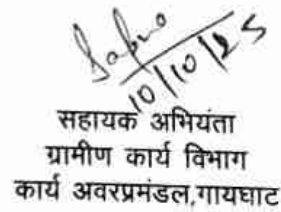 10/10/25
सहायक अभियंता
ग्रामीण कार्य विभाग
कार्य अवरप्रमंडल,गायघाट